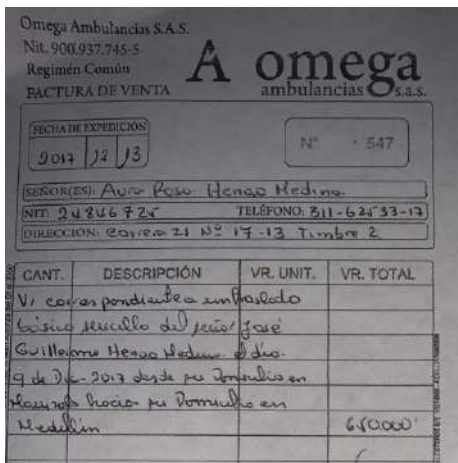 Omega Ambulancias S.A.S.
Nit. 900.937.745-5
Regimén Común
FACTURA DE VENTA
A omega
ambulancias s.a.s.
FECHA DE EXPEDICIÓN
2017 12 13
Nº 547
SEÑOR(ES): Aura Rosa Henao Medina
NIT: 24846725 TELÉFONO: 311-62533-17
DIRECCIÓN: Carrera 21 Nº 17-13 Timbre 2
CANT. DESCRIPCIÓN VR. UNIT. VR. TOTAL
Vr correspondiente a un traslado
básico sencillo del señor José
Guillermo Henao Medina el día
9 de Dic-2017 desde su Domicilio en
hacia su Domicilio en
Medellín 650.000